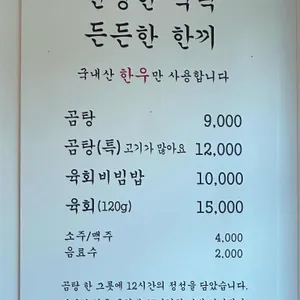 든든한 한끼
국내산 한우만 사용합니다
곰탕 9,000
곰탕(특) 고기가 많아요 12,000
육회비빔밥 10,000
육회(120g) 15,000
소주/맥주 4,000
음료수 2,000
곰탕 한 그릇에 12시간의 정성을 담았습니다.